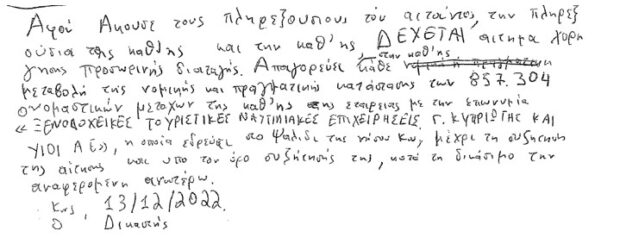 Αφού Άκουσε τους πληρεξουσιους τού αιτούντος, την πληρεξ
ούσια της καθ'ης και την καθ'ης, ΔΕΧΕΤΑΙ αιτημα χορη
γησης προσωρινής διαταγής. Απαγορεύει στην καθ'ης κάθε νομική ή πραγματικη
μεταβολή της νομικής και πραγματικής κατάστασης των 857.304
ονομαστικών μετοχων της καθ'ης της εταιρειας με την επωνυμία
«ΞΕΝΟΔΟΧΕΙΚΕΣ ΤΟΥΡΙΣΤΙΚΕΣ ΝΑΥΤΙΛΙΑΚΕΣ ΕΠΙΧΕΙΡΗΣΕΙΣ Γ. ΚΥΠΡΙΩΤΗΣ ΚΑΙ
ΥΙΟΙ ΑΕ», η οποία εδρεύει στο Ψαλίδι της νήσου Κω, μέχρι τη συζήτηση
της αίτησης και υπο τον όρο συζήτησής της, κατά τη δικάσιμο την
αναφερομένη ανωτέρω.
Κως, 13/12/2022
Ο Δικαστής